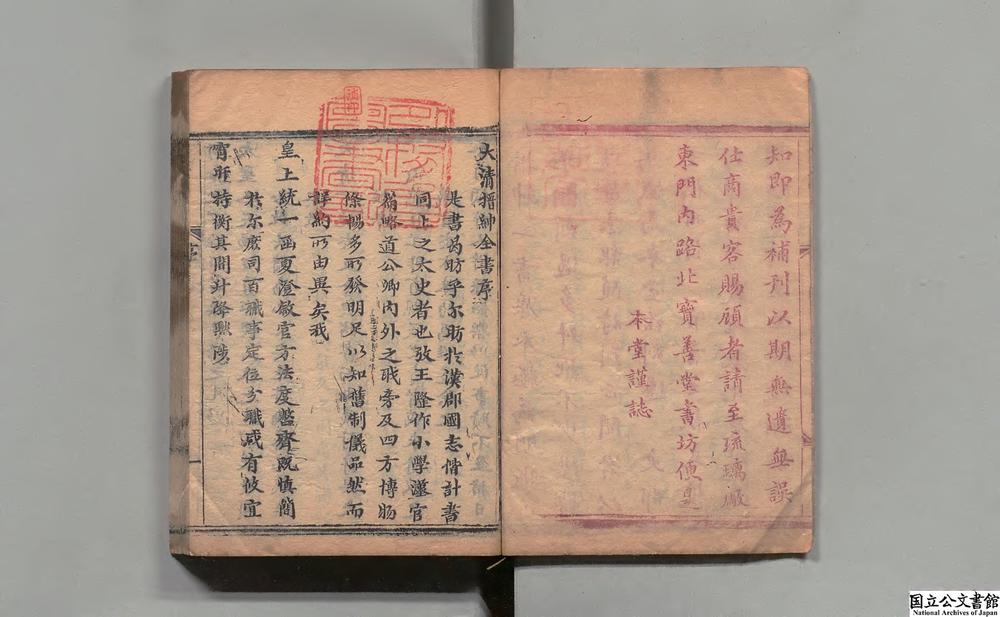 知即為補刊以期無遺無誤
仕商貴客賜顧者請至琉璃廠
東門內路北寶善堂書坊便是
本堂謹誌
大清搢紳全書序
是書曷昉乎尔昉於漢郡國志偕計書
同上之太史者也攷王隆作小學漢官
篇略道公卿內外之職旁及四方博物
條暢多所發明足以知舊制儀品然而
詳約所由異矣我
皇上統一函夏澄敘官方法度鑑齊既慎簡
於尔庶司百職事定位分職咸有攸宜
宵旰特衡其間升降黜陟
国立公文書館
National Archives of Japan